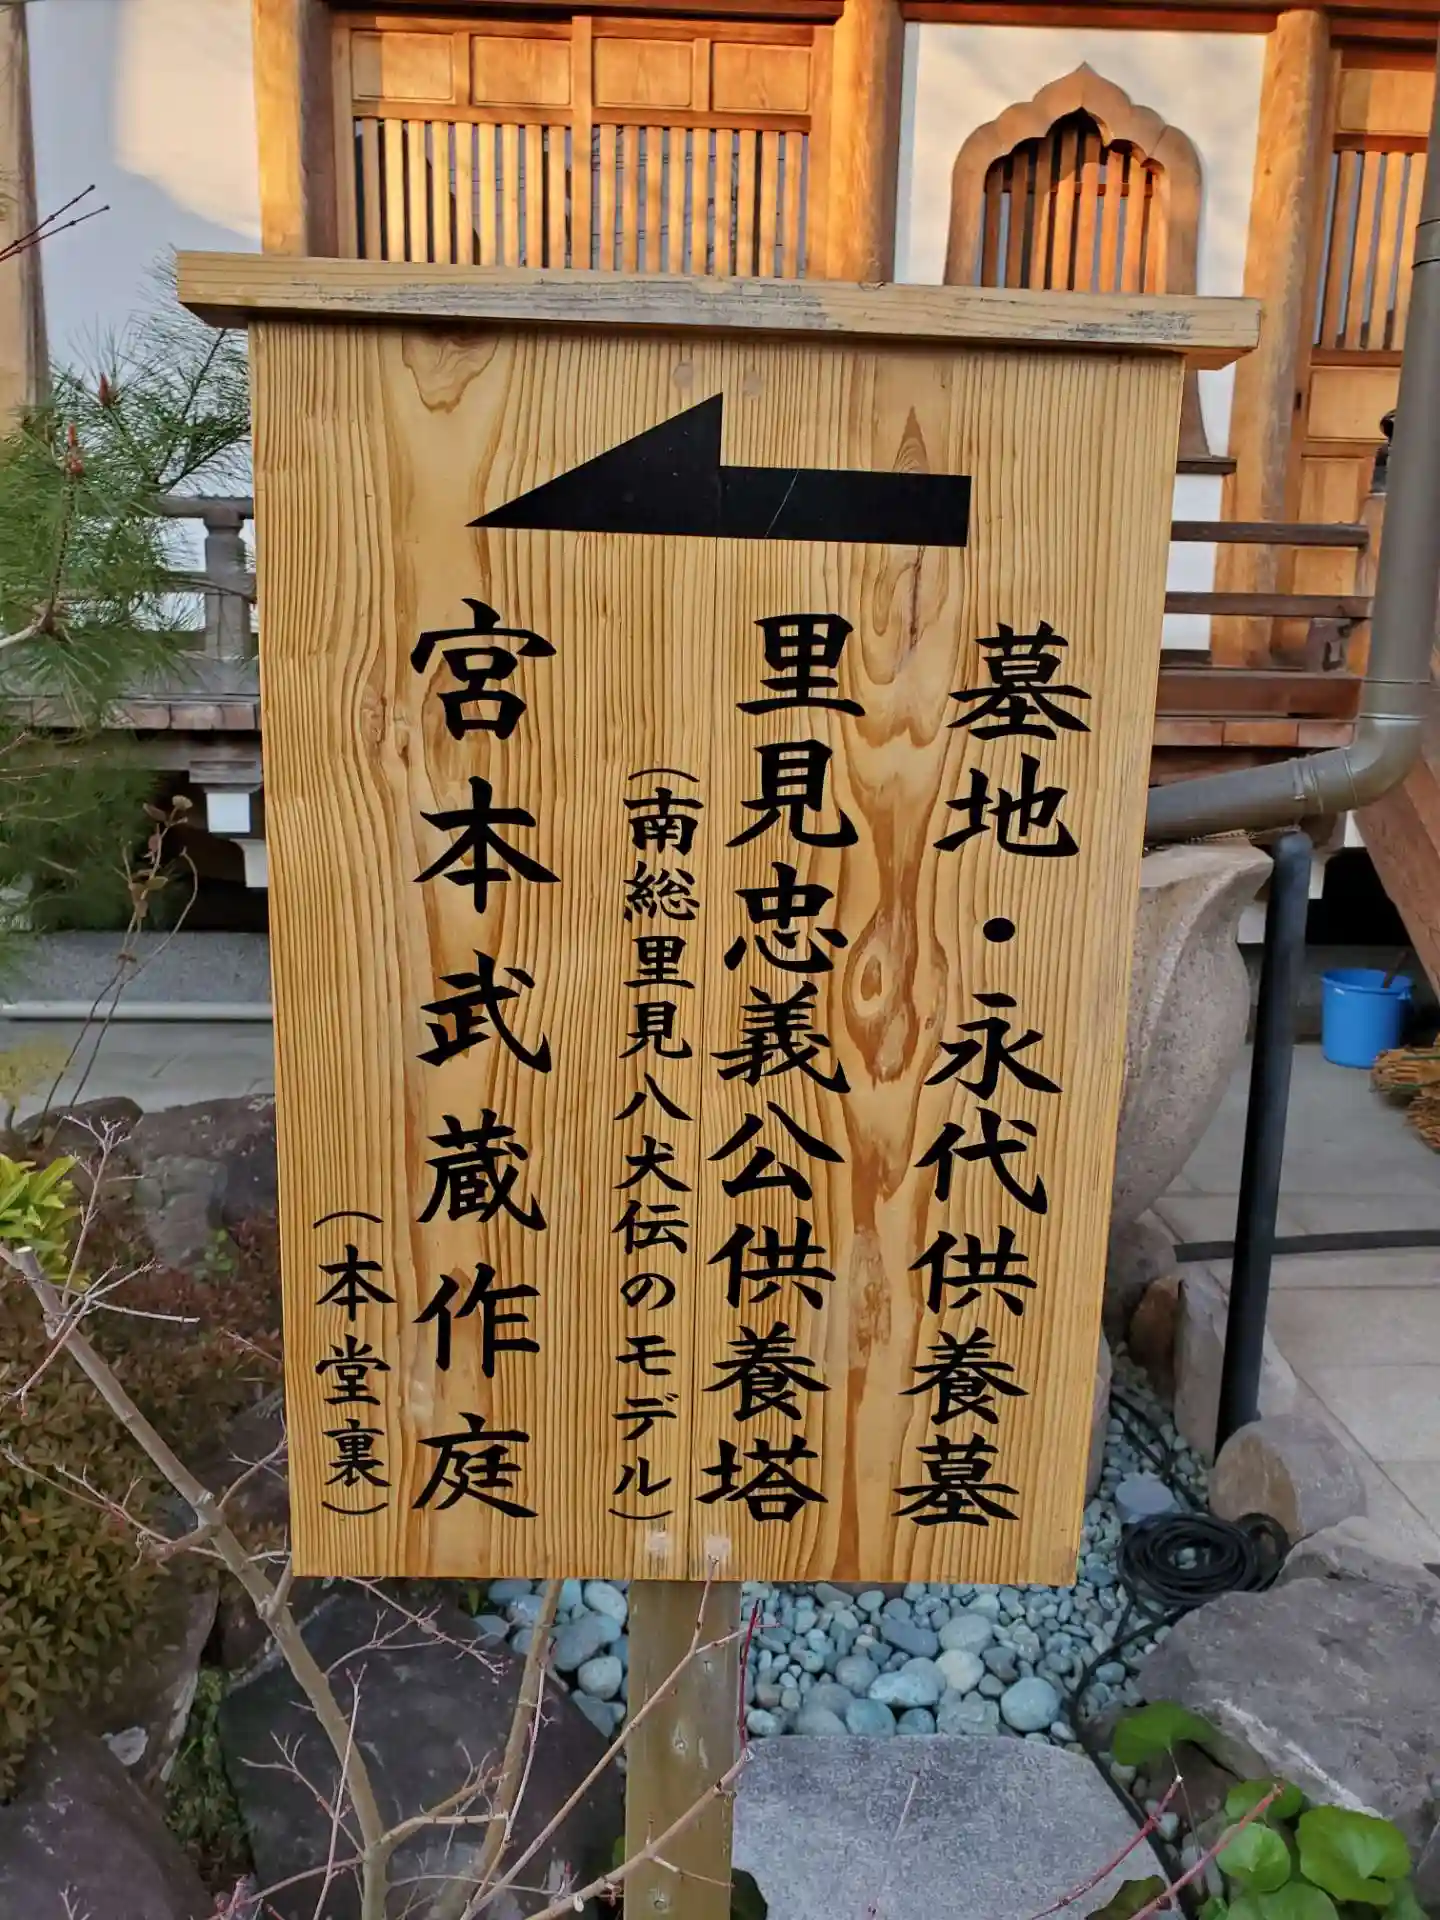 墓地・永代供養墓
里見忠義公供養塔
(南総里見八犬伝のモデル)
宮本武蔵作庭
(本堂裏)